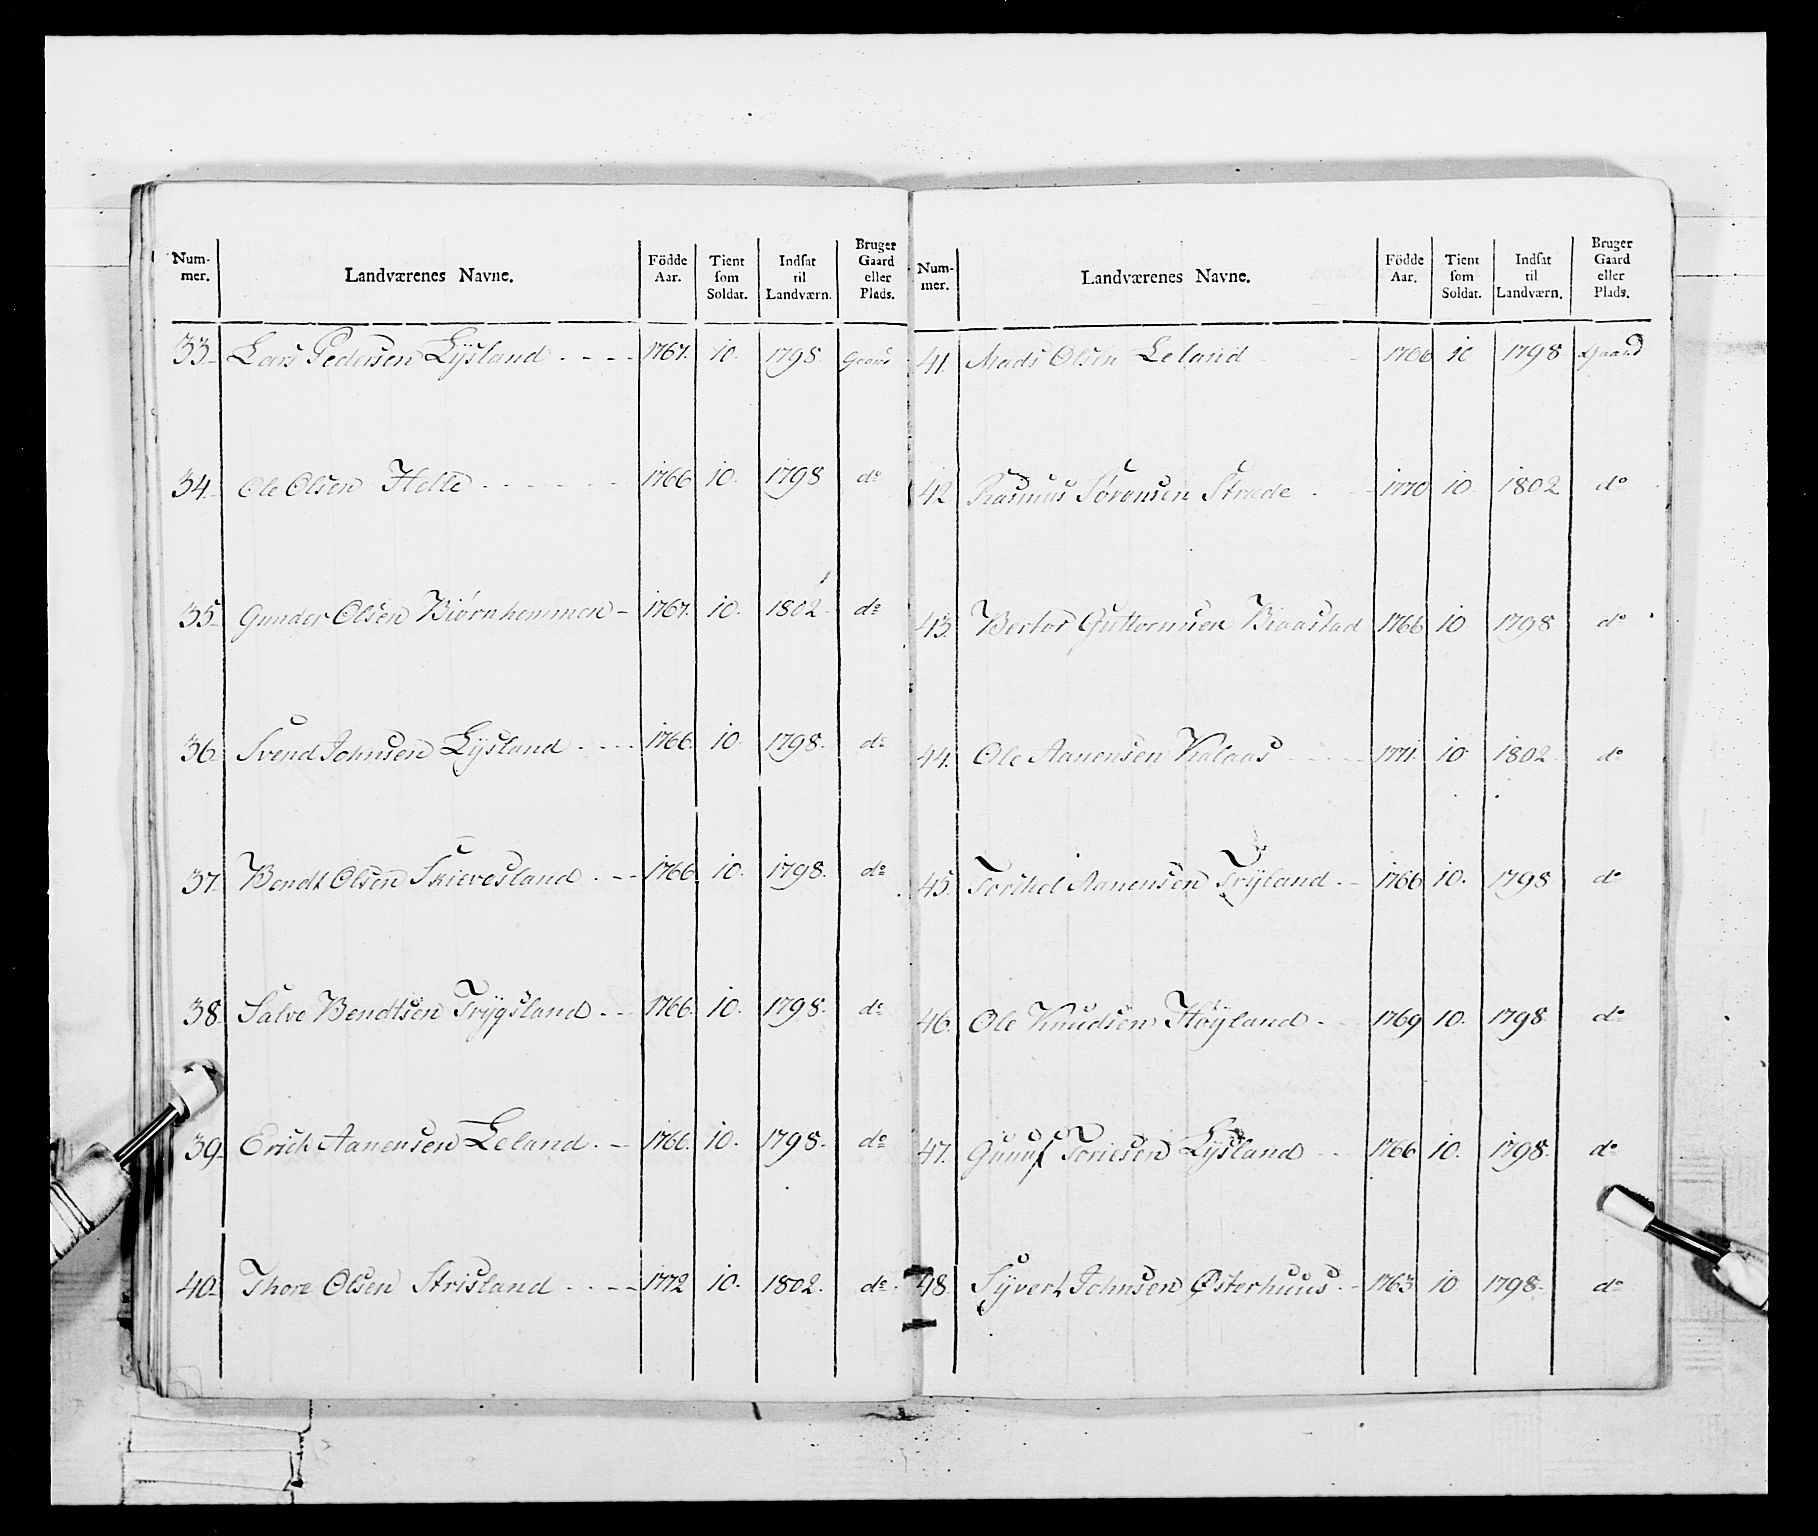 Num-mer. Landværenes Navne. Födde Aar. Tient som Soldat. Indsat til Landværn. Bruger Gaard eller Plads.
33. Lars Pedersen Lÿsland 1767. 10. 1798 Gaard
34. Ole Olsen Helle 1766 10. 1798 do
35. Gunder Olsen Biørnhommen 1767. 10. 1802 do
36. Svend Johnsen Lÿsland 1766 10 1798. do
37. Bendt Olsen Skievesland 1766 10. 1798. do
38. Salve Bendtsen Trÿgsland 1766. 10. 1798. do
39. Erich Aanensen Leland 1766. 10. 1798. do
40. Thore Olsen Strisland 1772 10. 1802. do
Num-mer. Landværenes Navne. Födde Aar. Tient som Soldat. Indsat til Landværn. Bruger Gaard eller Plads.
41. Mads Olsen Leland 1766 10 1798 Gaard
42 Rasmus Sørensen Stræde 1770 10. 1802 do
43. Guttormsen 1766 10 1798 do
44. Ole Aanensen 1771. 10 1802 do
45. Torchel Aanensen Trÿland 1766 10. 1798 do
46. Ole Knudsen Høÿland 1769 10. 1798 do
47. Toriesen Lÿsland 1766 10. 1798. do
48. Sÿvert Johnsen Østerhuus 1763 10 1798 do